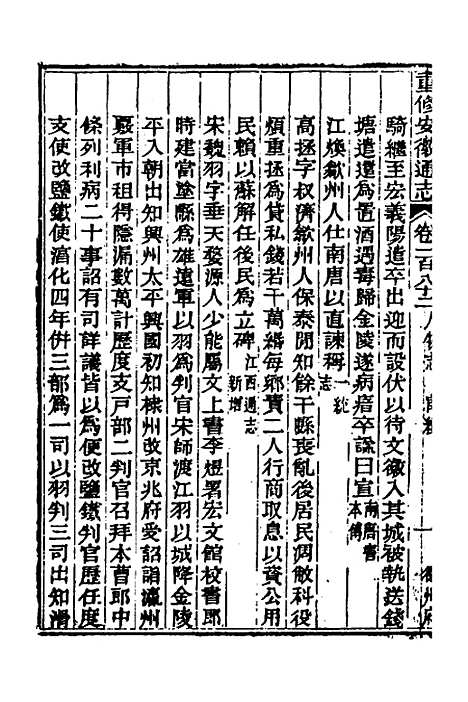 重修安徽通志 卷二百八十二 人物志
騎繼至宏義陽遣卒出迎而設伏以待文徽入其城被執送錢
塘遣還為置酒遇毒歸金陵遂病瘖卒諡曰宣南唐書本傳
江煥歙州人仕南唐以直諫稱一統志
高拯字叔濟歙州人保泰間知餘干縣喪亂後居民凋敝科役
煩重拯為貸私錢若干萬緡每鄉責二人行商取息以資公用
民賴以蘇解任後民為立碑江西通志新增
宋魏羽字垂天婺源人少能屬文上書李煜署宏文館校書郎
時建當塗縣為雄遠軍以羽為判官宋師渡江羽以城降金陵
平入朝出知興州太平興國初知棣州改京兆府受詔詣瀛州
覈軍市租得隱漏數萬計歷度支戸部二判官召拜本曹郎中
條列利病二十事詔有司詳議皆以為便改鹽鐵判官歷任度
支使改鹽鐵使淳化四年併三部為一司以羽判三司出知滑